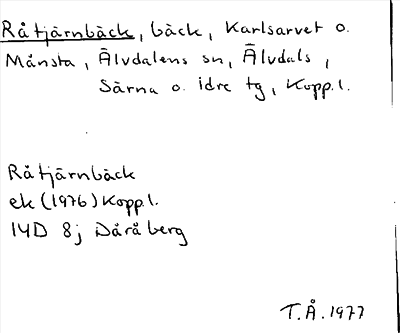 Råtjärnbäck, bäck, Karlsarvet o.
Månsta, Älvdalens sn, Älvdals,
Särna o. Idre tg, Kopp.l.
Råtjärnbäck
ek (1976) Kopp.l.
14D 8j Dåråberg
T.Å. 1977